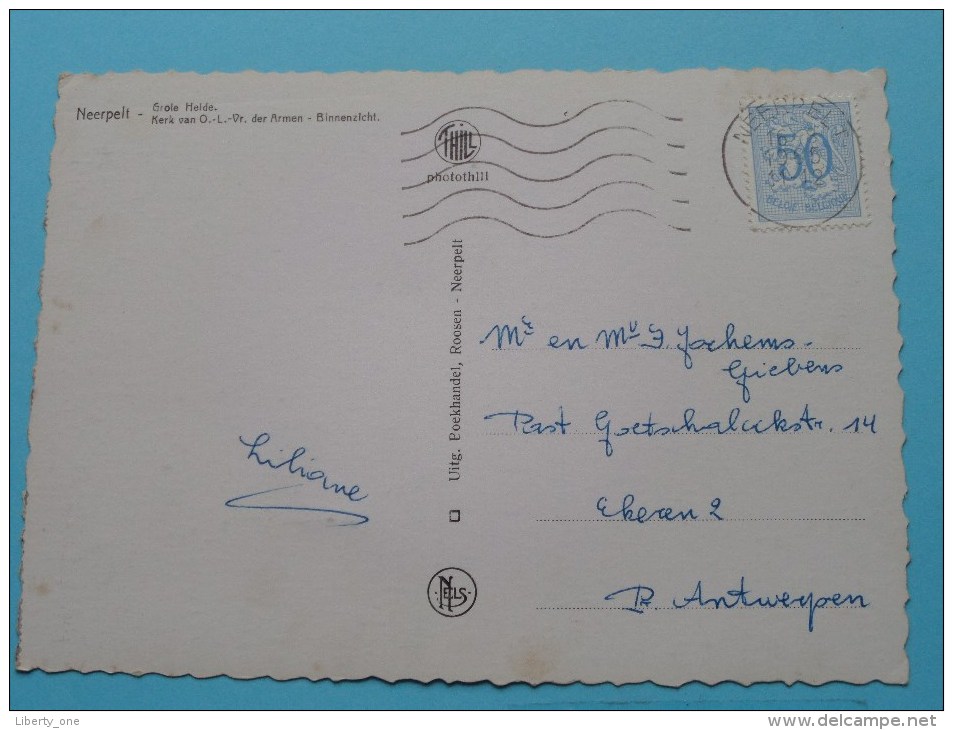 Neerpelt - Grote Heide.
Kerk van O.-L.-Vr. der Armen - Binnenzicht.
THILL
photothill
NEERPELT
50
BELGIE-BELGIQUE
Uitg. Poekhandel, Roosen - Neerpelt
Mr en Mv J. Jochems-
Giebens
Past Goetschalckstr. 14
Ekeren 2
Pr. Antwerpen
Liliane
NELS
Liberty_one
delcampe.net